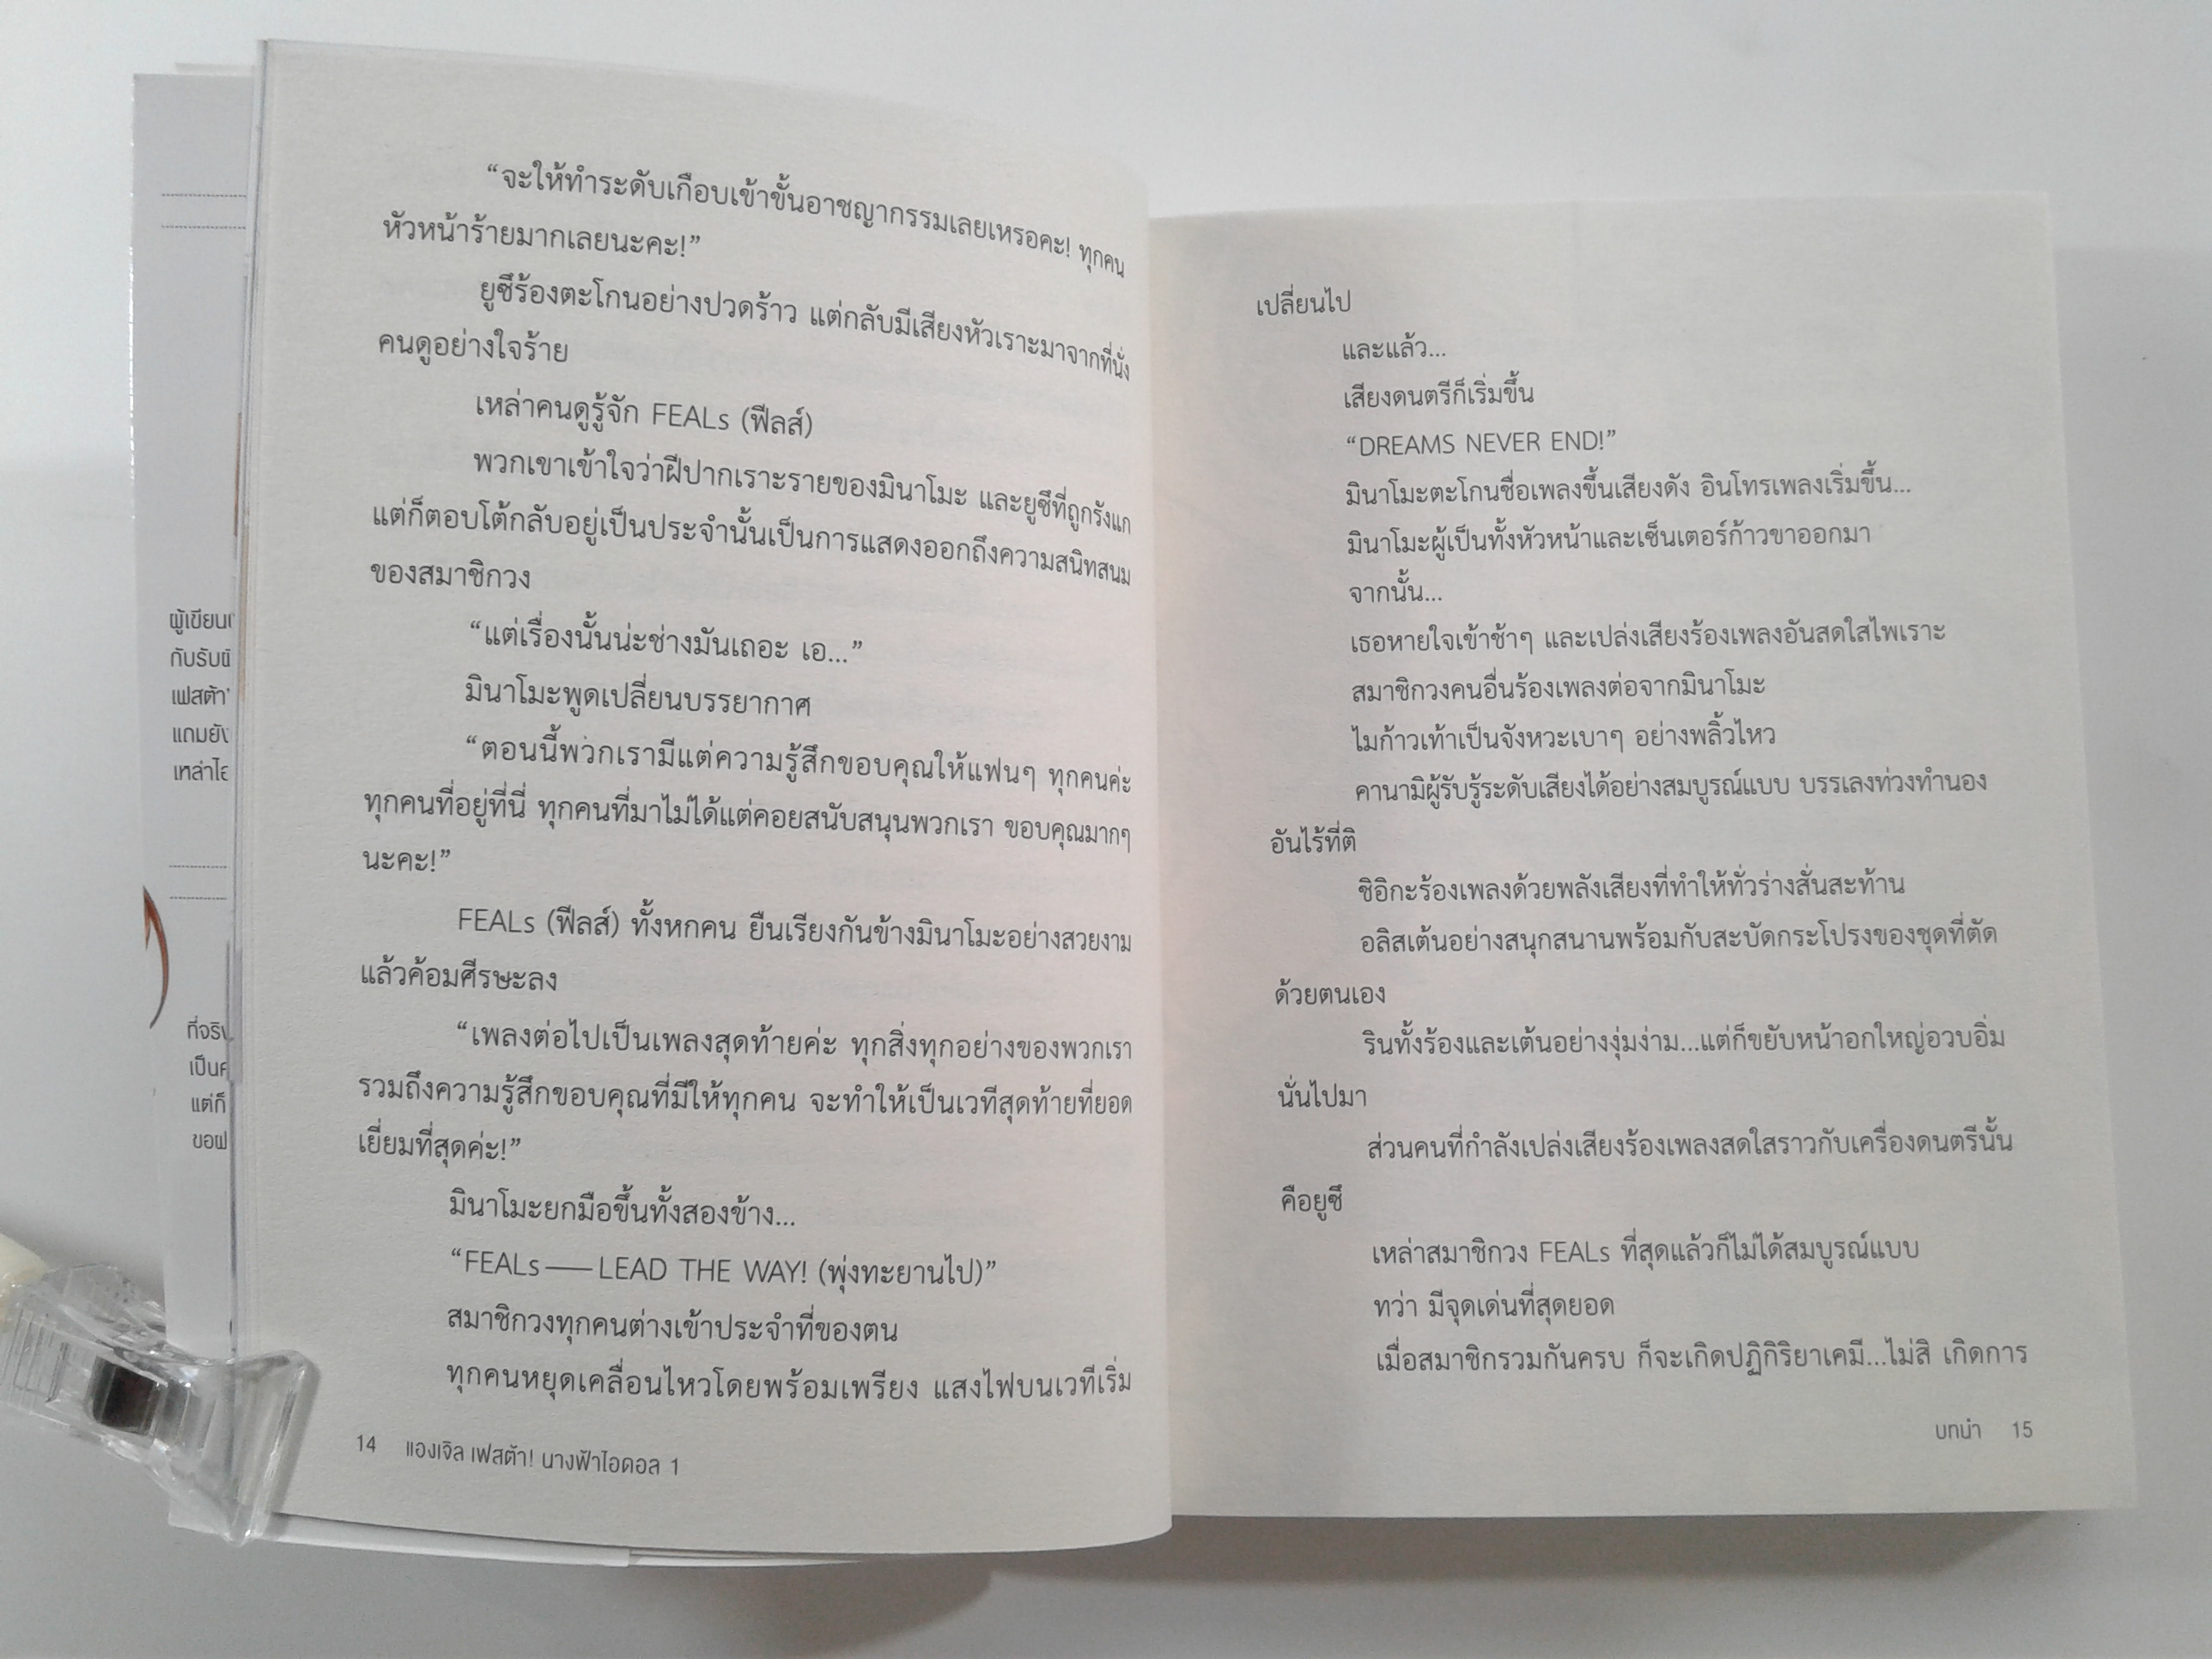 “จะให้ทำระดับเกือบเข้าขั้นอาชญากรรมเลยเหรอคะ! ทุกคน
หัวหน้าร้ายมากเลยนะคะ!”
ยูซึร้องตะโกนอย่างปวดร้าว แต่กลับมีเสียงหัวเราะมาจากที่นั่ง
คนดูอย่างใจร้าย
เหล่าคนดูรู้จัก FEALs (ฟีลส์)
พวกเขาเข้าใจว่าฝีปากเราะรายของมินาโมะ และยูซึที่ถูกรังแก
แต่ก็ตอบโต้กลับอยู่เป็นประจำนั้นเป็นการแสดงออกถึงความสนิทสนม
ของสมาชิกวง
“แต่เรื่องนั้นน่ะช่างมันเถอะ เอ...”
มินาโมะพูดเปลี่ยนบรรยากาศ
“ตอนนี้พวกเรามีแต่ความรู้สึกขอบคุณให้แฟนๆ ทุกคนค่ะ
ทุกคนที่อยู่ที่นี่ ทุกคนที่มาไม่ได้แต่คอยสนับสนุนพวกเรา ขอบคุณมากๆ
นะคะ!”
FEALs (ฟีลส์) ทั้งหกคน ยืนเรียงกันข้างมินาโมะอย่างสวยงาม
แล้วค้อมศีรษะลง
“เพลงต่อไปเป็นเพลงสุดท้ายค่ะ ทุกสิ่งทุกอย่างของพวกเรา
รวมถึงความรู้สึกขอบคุณที่มีให้ทุกคน จะทำให้เป็นเวทีสุดท้ายที่ยอด
เยี่ยมที่สุดค่ะ!”
มินาโมะยกมือขึ้นทั้งสองข้าง...
“FEALs——LEAD THE WAY! (พุ่งทะยานไป)”
สมาชิกวงทุกคนต่างเข้าประจำที่ของตน
ทุกคนหยุดเคลื่อนไหวโดยพร้อมเพรียง แสงไฟบนเวทีเริ่ม
14 แองเจิล เฟสต้า! นางฟ้าไอดอล 1
เปลี่ยนไป
และแล้ว...
เสียงดนตรีก็เริ่มขึ้น
“DREAMS NEVER END!”
มินาโมะตะโกนชื่อเพลงขึ้นเสียงดัง อินโทรเพลงเริ่มขึ้น...
มินาโมะผู้เป็นทั้งหัวหน้าและเซ็นเตอร์ก้าวขาออกมา
จากนั้น...
เธอหายใจเข้าช้าๆ และเปล่งเสียงร้องเพลงอันสดใสไพเราะ
สมาชิกวงคนอื่นร้องเพลงต่อจากมินาโมะ
ไมก้าวเท้าเป็นจังหวะเบาๆ อย่างพลิ้วไหว
คานามิผู้รับรู้ระดับเสียงได้อย่างสมบูรณ์แบบ บรรเลงท่วงทำนอง
อันไร้ที่ติ
ชิอิกะร้องเพลงด้วยพลังเสียงที่ทำให้ทั่วร่างสั่นสะท้าน
อลิสเต้นอย่างสนุกสนานพร้อมกับสะบัดกระโปรงของชุดที่ตัด
ด้วยตนเอง
รินทั้งร้องและเต้นอย่างงุ่มง่าม...แต่ก็ขยับหน้าอกใหญ่อวบอิ่ม
นั่นไปมา
ส่วนคนที่กำลังเปล่งเสียงร้องเพลงสดใสราวกับเครื่องดนตรีนั้น
คือยูซึ
เหล่าสมาชิกวง FEALs ที่สุดแล้วก็ไม่ได้สมบูรณ์แบบ
ทว่า มีจุดเด่นที่สุดยอด
เมื่อสมาชิกรวมกันครบ ก็จะเกิดปฏิกิริยาเคมี...ไม่สิ เกิดการ
บทนำ 15
ผู้เขียน
กับรับ
เฟสต้า
แถมยัง
เหล่าไอ
ที่จริง
เป็น
แต่ก็
ขอ